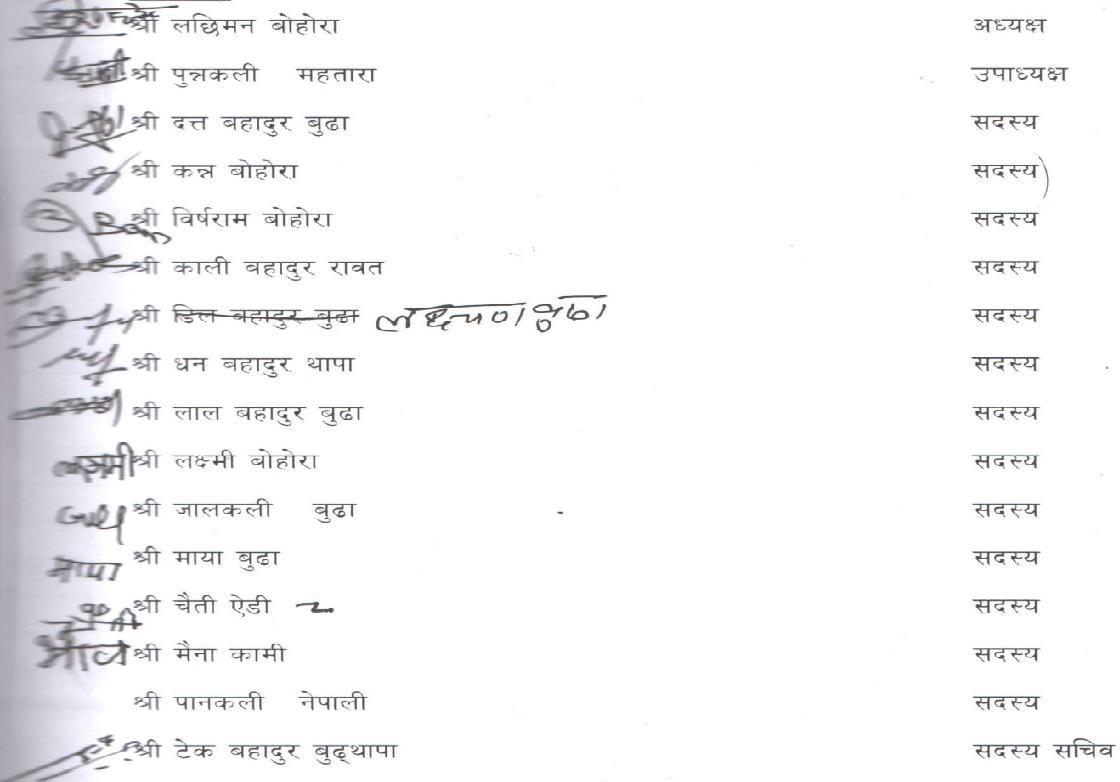 श्री लछिमन बोहोरा अध्यक्ष
श्री पुन्नकली महतारा उपाध्यक्ष
श्री दत्त बहादुर बुढा सदस्य
श्री कन्न बोहोरा सदस्य
श्री विर्षराम बोहोरा सदस्य
श्री काली बहादुर रावत सदस्य
श्री डिल बहादुर बुढा लक्ष्मण बुढा सदस्य
श्री धन बहादुर थापा सदस्य
श्री लाल बहादुर बुढा सदस्य
श्री लक्ष्मी बोहोरा सदस्य
श्री जालकली बुढा सदस्य
माया श्री माया बुढा सदस्य
श्री चैती ऐडी सदस्य
श्री मैना कामी सदस्य
श्री पानकली नेपाली सदस्य
श्री टेक बहादुर बुढ्थापा सदस्य सचिव